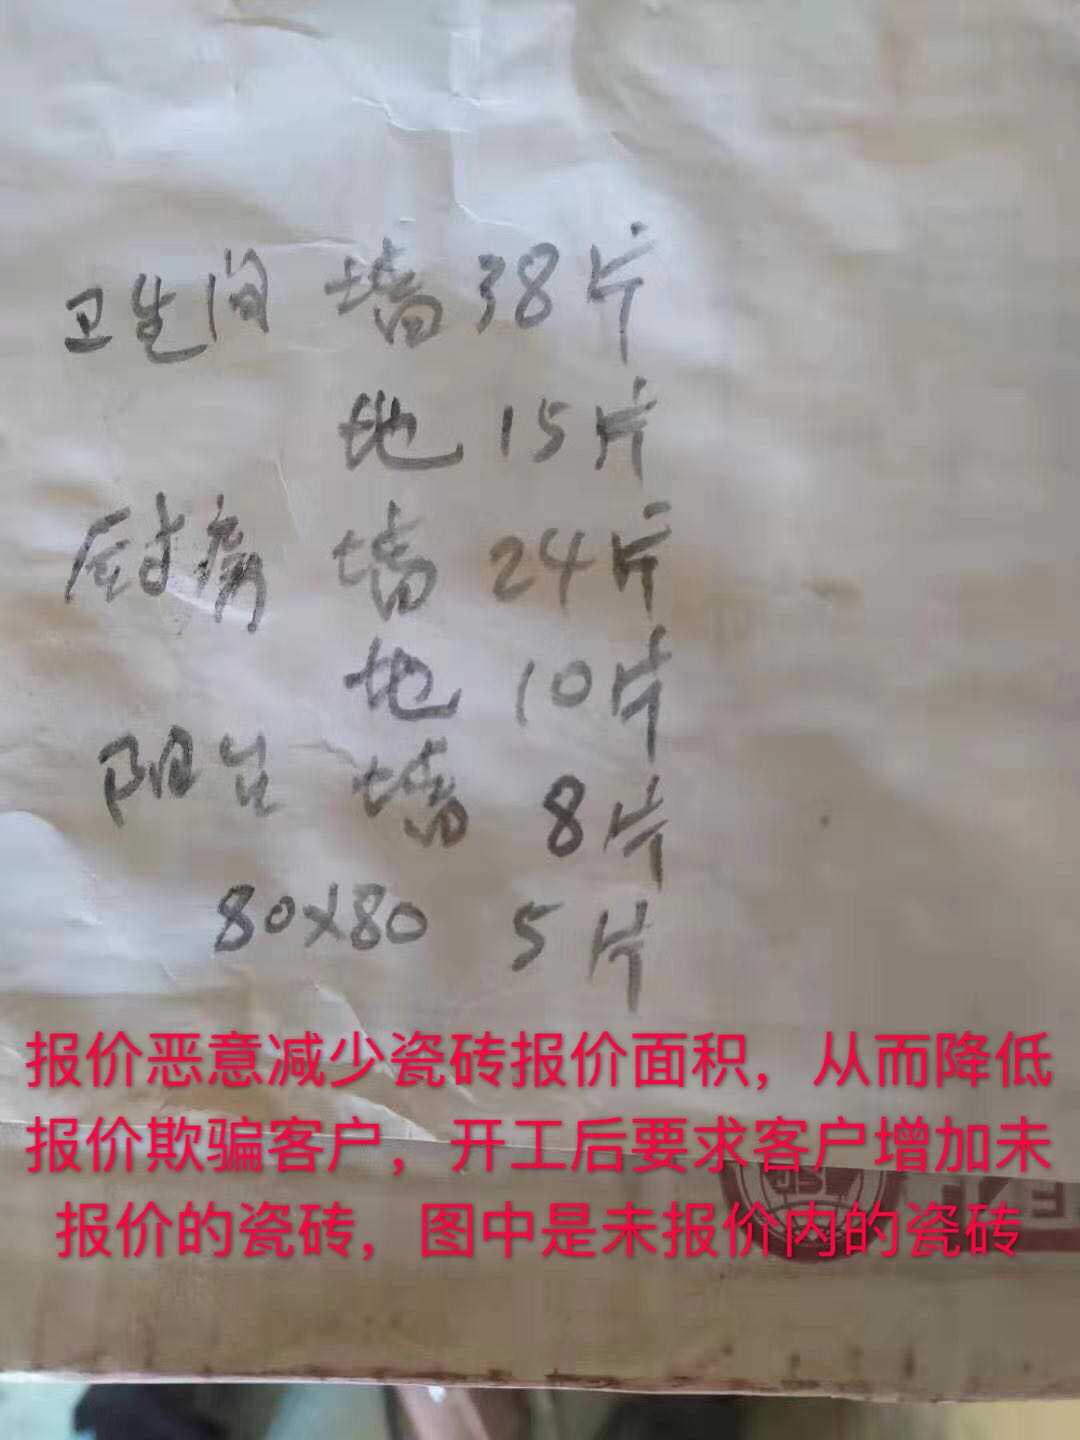 卫生间 墙 38片
地 15片
厨房 墙 24片
地 10片
阳台 墙 8片
80x80 5片
报价恶意减少瓷砖报价面积，从而降低
报价欺骗客户，开工后要求客户增加未
报价的瓷砖，图中是未报价内的瓷砖